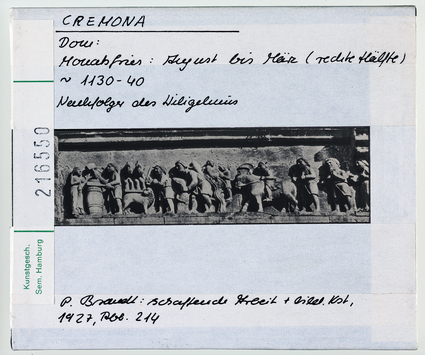 CREMONA
Dom:
Monatsfries: August bis März (rechte Hälfte)
~ 1130-40
Nachfolger des Wiligelmus
216550
Kunstgesch.
Sem. Hamburg
P. Brandt: schaffende Arbeit + bild. Kst,
1927, Abb. 214